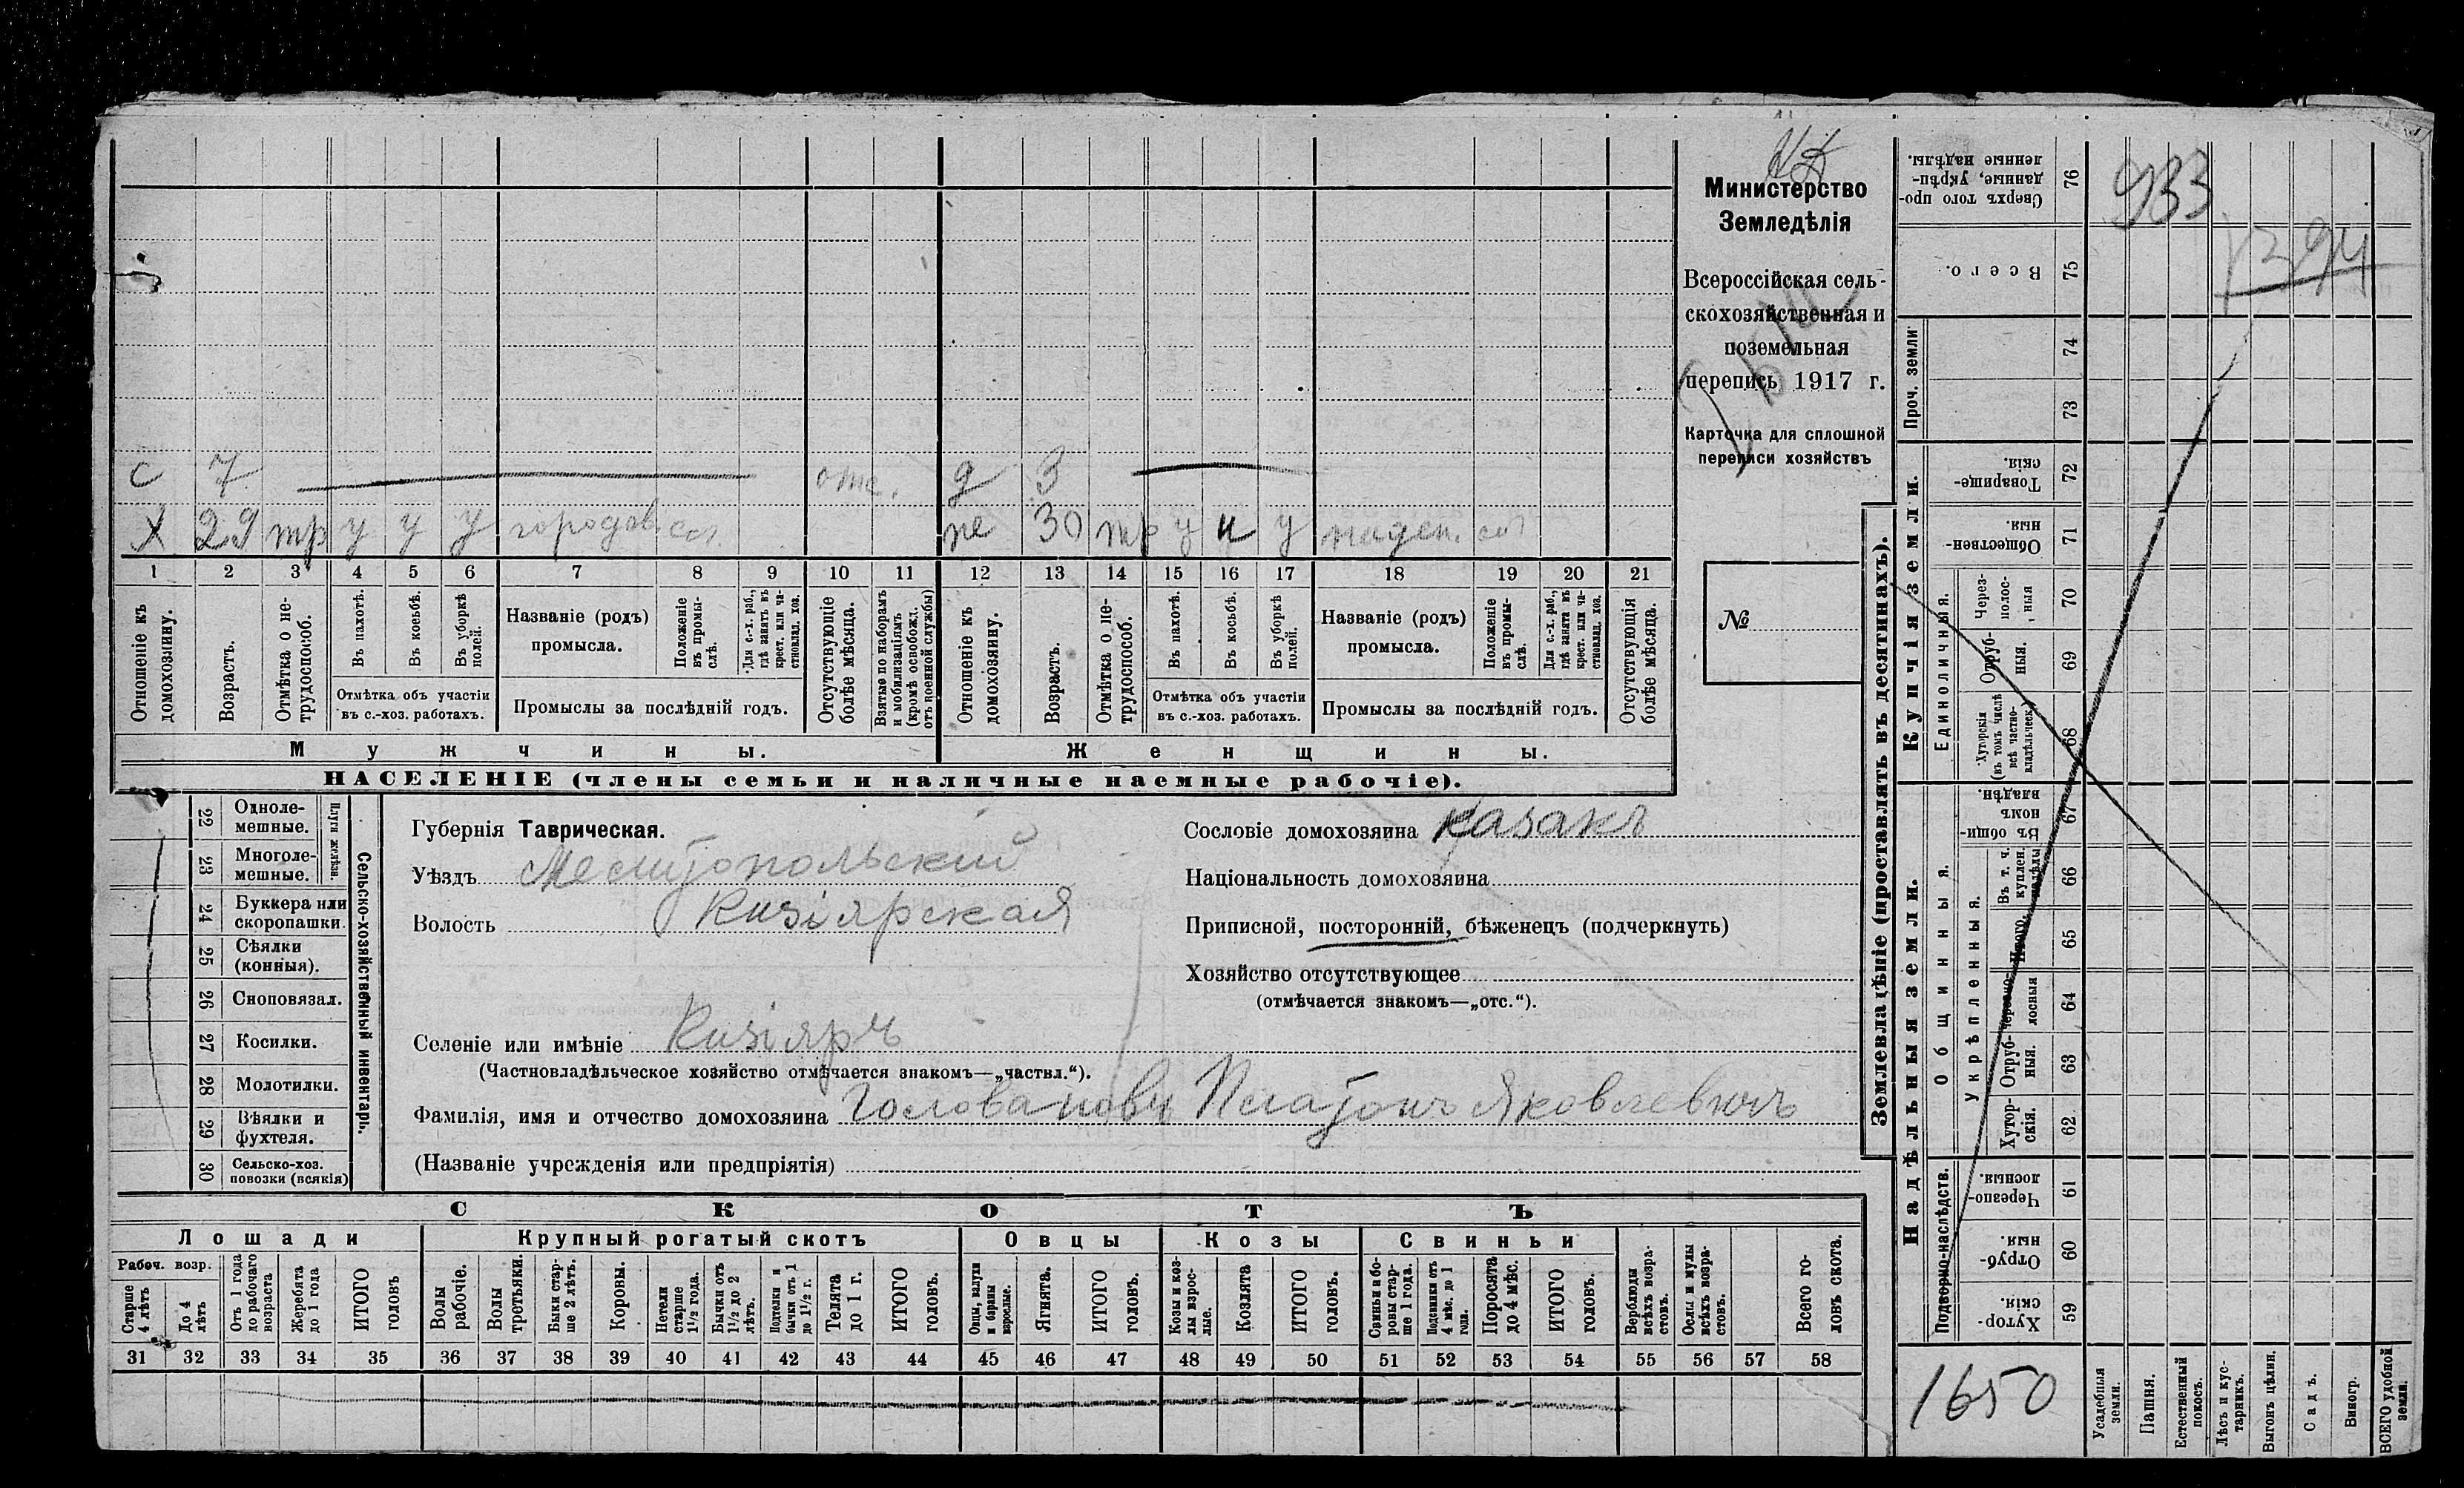 Министерство
Земледѣлія
Всероссійская сель-
скохозяйственная и
поземельная
перепись 1917 г.
Карточка для сплошной
переписи хозяйствъ
№
с 7 отс. д 3
х 29 тр у у у 30 тр у н у
1 2 3 4 5 6 7 8 9 10 11 12 13 14 15 16 17 18 19 20 21
Отношеніе къ домохозяину.
Возрастъ.
Отмѣтка о не-трудоспособ.
Въ пахотѣ.
Въ косьбѣ.
Въ уборкѣ полей.
Отмѣтка объ участіи
въ с.-хоз. работахъ.
Названіе (родъ)
промысла.
Положеніе въ промы-слѣ.
Для с.-х. раб., гдѣ занятъ въ крест. или ча-стновлад. хоз.
Промыслы за послѣдній годъ.
Отсутствующіе болѣе мѣсяца.
Взятые по наборамъ и мобилизаціямъ (кромѣ освобожд. отъ военной службы)
Отношеніе къ домохозяину.
Возрастъ.
Отмѣтка о не-трудоспособ.
Въ пахотѣ.
Въ косьбѣ.
Въ уборкѣ полей.
Отмѣтка объ участіи
въ с.-хоз. работахъ.
Названіе (родъ)
промысла.
Положеніе въ промы-слѣ.
Для с.-х. раб., гдѣ занята въ крест. или ча-стновлад. хоз.
Промыслы за послѣдній годъ.
Отсутствующія болѣе мѣсяца.
Мужчины.
Женщины.
НАСЕЛЕНІЕ (члены семьи и наличные наемные рабочіе).
22 Одноле-мешные.
23 Многоле-мешные.
Плуги желѣзн.
24 Буккера или скоропашки.
25 Сѣялки (конныя).
26 Сноповязал.
27 Косилки.
28 Молотилки.
29 Вѣялки и фухтеля.
30 Сельско-хоз. повозки (всякія)
Сельско-хозяйственный инвентарь.
Губернія Таврическая.
Уѣздъ Мелитопольский
Волость Кизіярская
Селеніе или имѣніе Кизіяръ
(Частновладѣльческое хозяйство отмѣчается знакомъ—„частвл.“).
Фамилія, имя и отчество домохозяина Головановъ Платонъ Яковлевичъ
(Названіе учрежденія или предпріятія)
Сословіе домохозяина казакъ
Національность домохозяина
Приписной, посторонній, бѣженецъ (подчеркнуть)
Хозяйство отсутствующее
(отмѣчается знакомъ—„отс.“).
СКОТЪ
Лошади
Крупный рогатый скотъ
Овцы
Козы
Свиньи
Рабоч. возр.
Старше 4 лѣтъ
До 4 лѣтъ
Отъ 1 года до рабочаго возраста
Жеребята до 1 года
ИТОГО головъ
Волы рабочіе.
Волы третьяки.
Быки стар-ше 2 лѣтъ.
Коровы.
Нетели старше 1½ года.
Бычки отъ 1½ до 2 лѣтъ.
Подтелки и бычки отъ 1 до 1½ г.
Телята до 1 г.
ИТОГО головъ.
Овцы, валухи и бараны взрослые.
Ягнята.
ИТОГО головъ.
Козы и коз-лы взрос-лые.
Козлята
ИТОГО головъ.
Свиньи и бо-ровы стар-ше 1 года.
Подсвинки отъ 4 мѣс. до 1 года.
Поросята до 4 мѣс.
ИТОГО головъ.
Верблюды всѣхъ возра-стовъ.
Ослы и мулы всѣхъ возра-стовъ.
Всего го-ловъ скота.
31 32 33 34 35 36 37 38 39 40 41 42 43 44 45 46 47 48 49 50 51 52 53 54 55 56 57 58
Землевладѣніе (проставлять въ десятинахъ).
Надѣльныя земли.
Купчія земли.
Проч. земли
Подворно-наслѣдств.
Общинныя.
Укрѣпленныя.
Единоличныя.
Хутор-скія. 59
Отруб-ныя. 60
Черезпо-лосныя. 61
Хутор-скія. 62
Отруб-ныя. 63
Черезпо-лосныя 64
Итого. 65
Въ т. ч. куплен. надѣлы 66
Въ общи-номъ владѣн. 67
Хуторскія (въ томъ числѣ всѣ частно-владѣльческ.) 68
Отруб-ныя. 69
Через-полос-ныя 70
Обществен-ныя. 71
Товарище-скія. 72
73
74
Всего. 75
Сверхъ того про-данные, укрѣп-ленные надѣлы. 76
933
1394
1650
Усадебныя земли.
Пашня.
Естественный покосъ.
Лѣсъ и кус-тарникъ.
Выгонъ цѣлин.
Садъ.
Виногр.
ВСЕГО удобной земли.